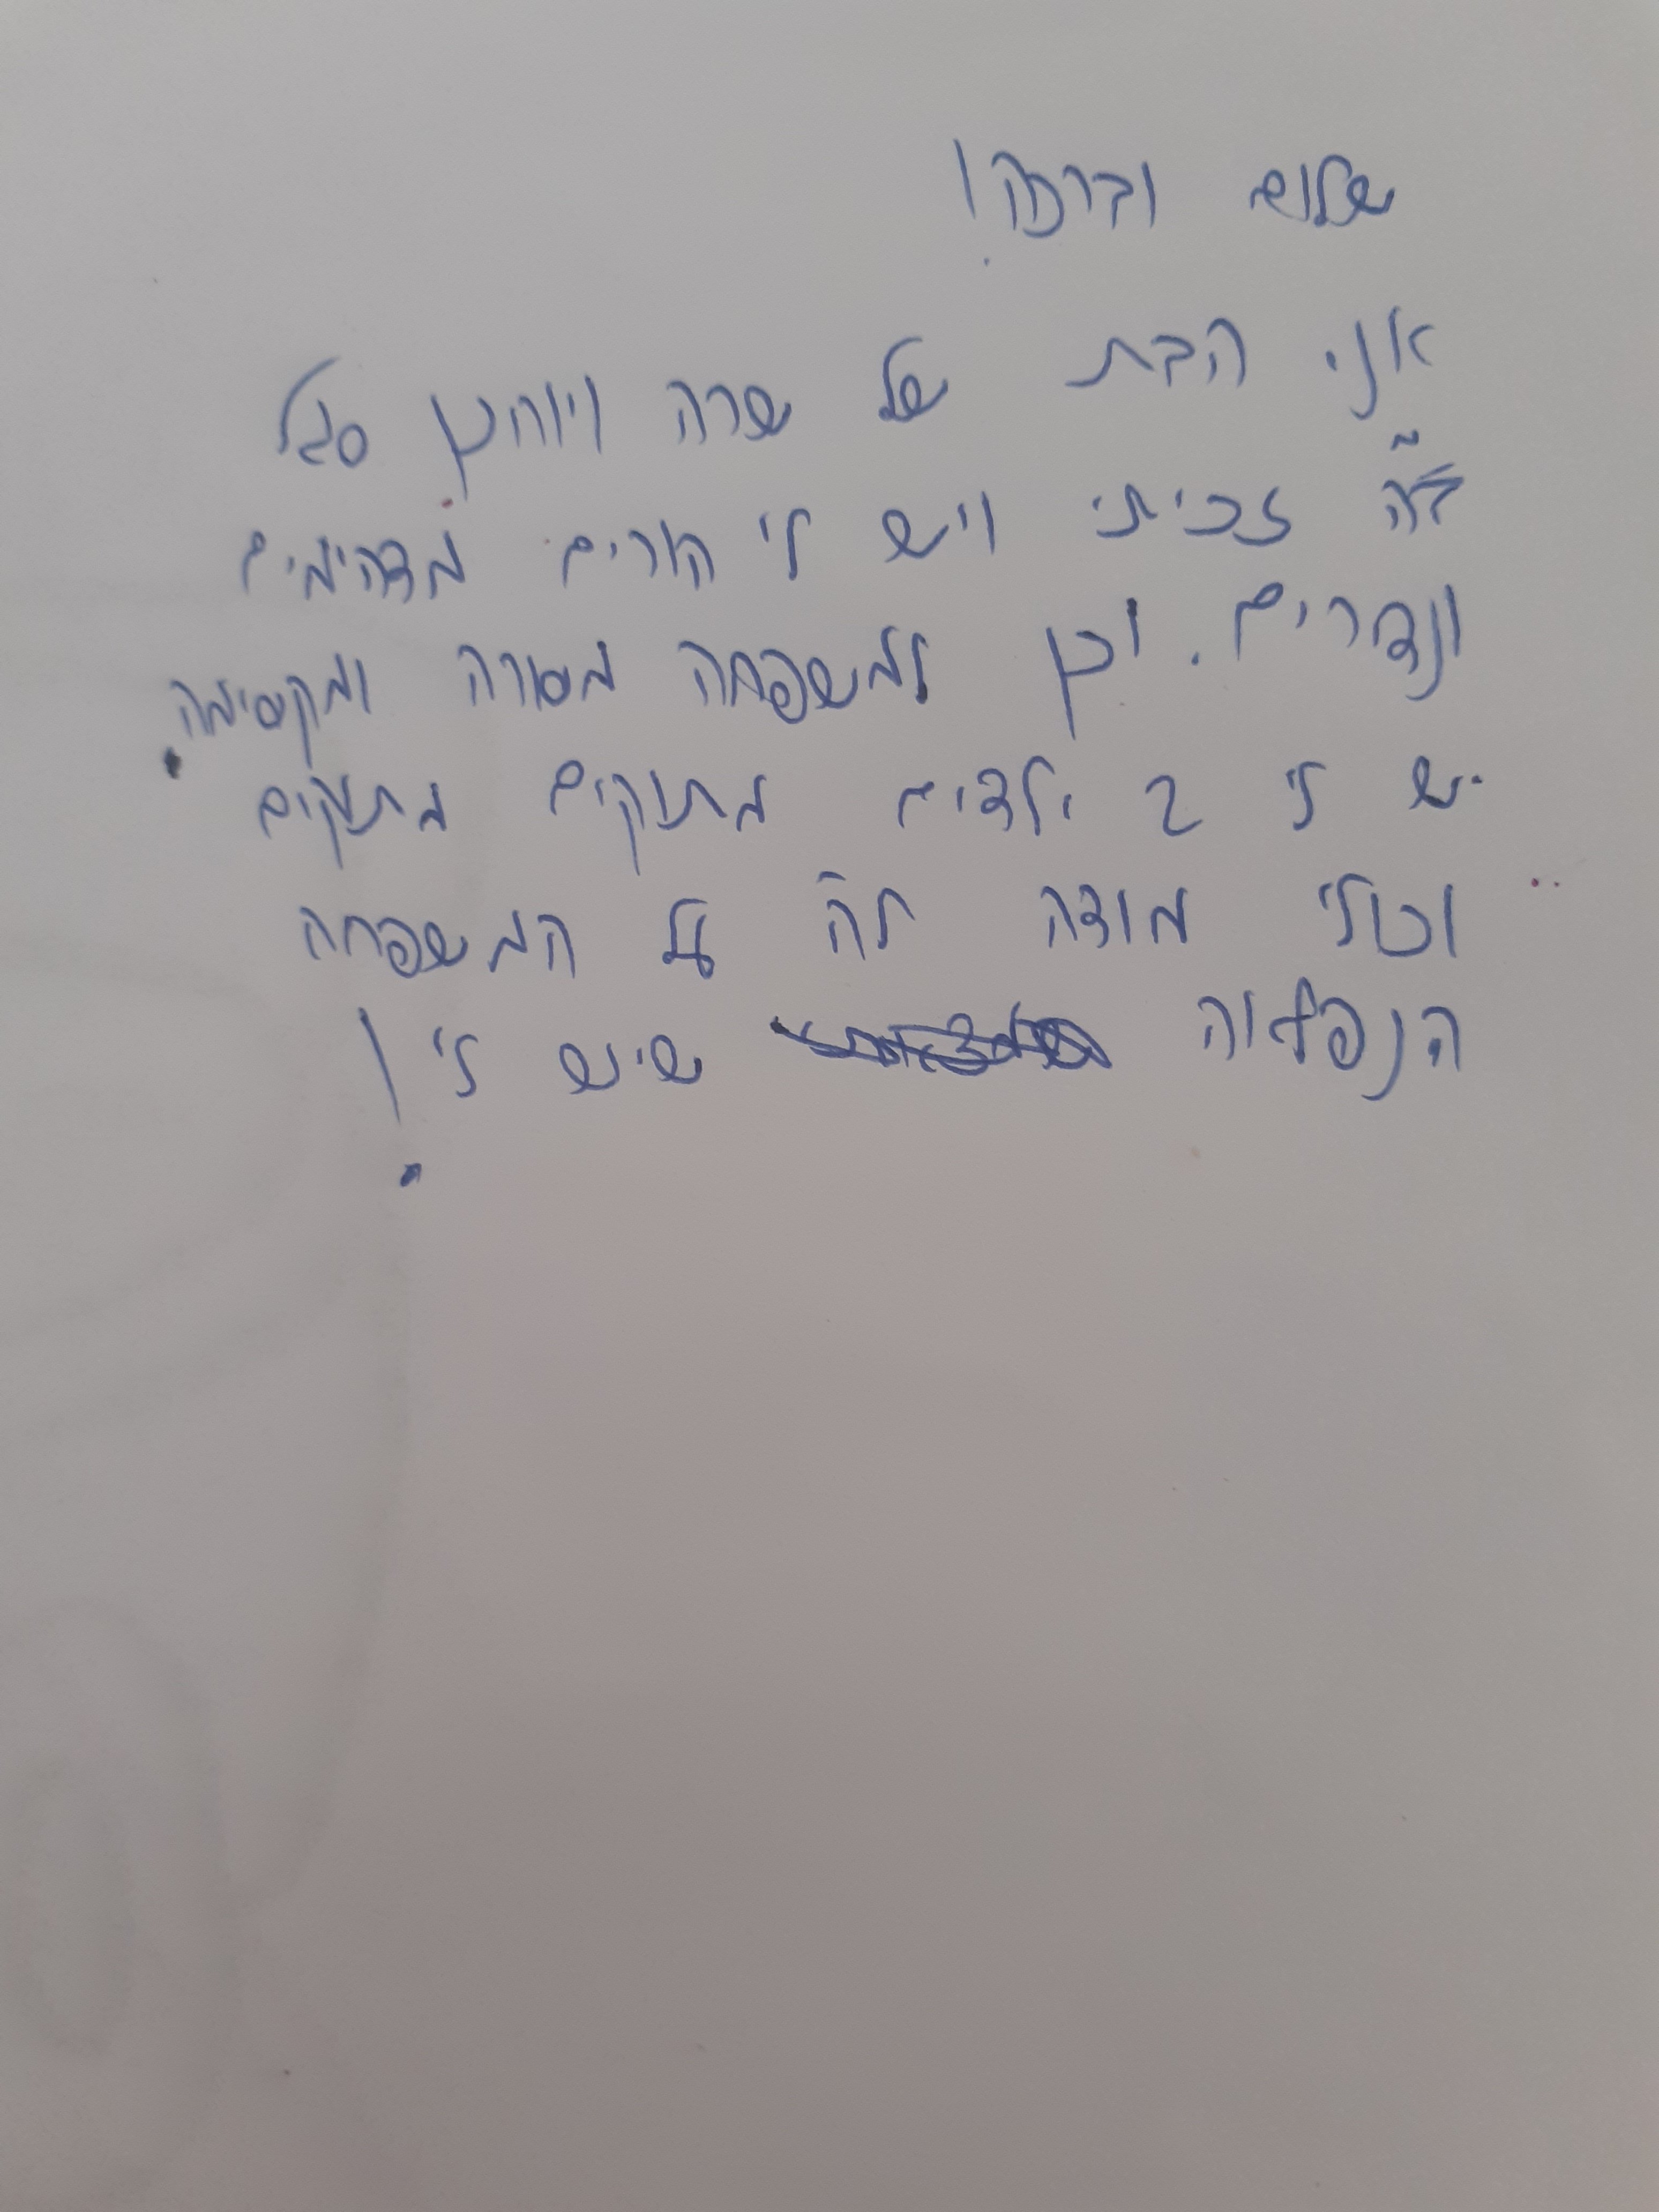 שלום וברכה!
אני הבת של שרה ויוחץ סגל
זה זכיתי ויש לי הורים מדהימים
ונדירים. וכן למשפחה מסורה ומקסימה.
יש לי 2 ילדים מתוקים מתוקים
וכולי תודה לה על המשפחה
הנפלאה שיש לי!